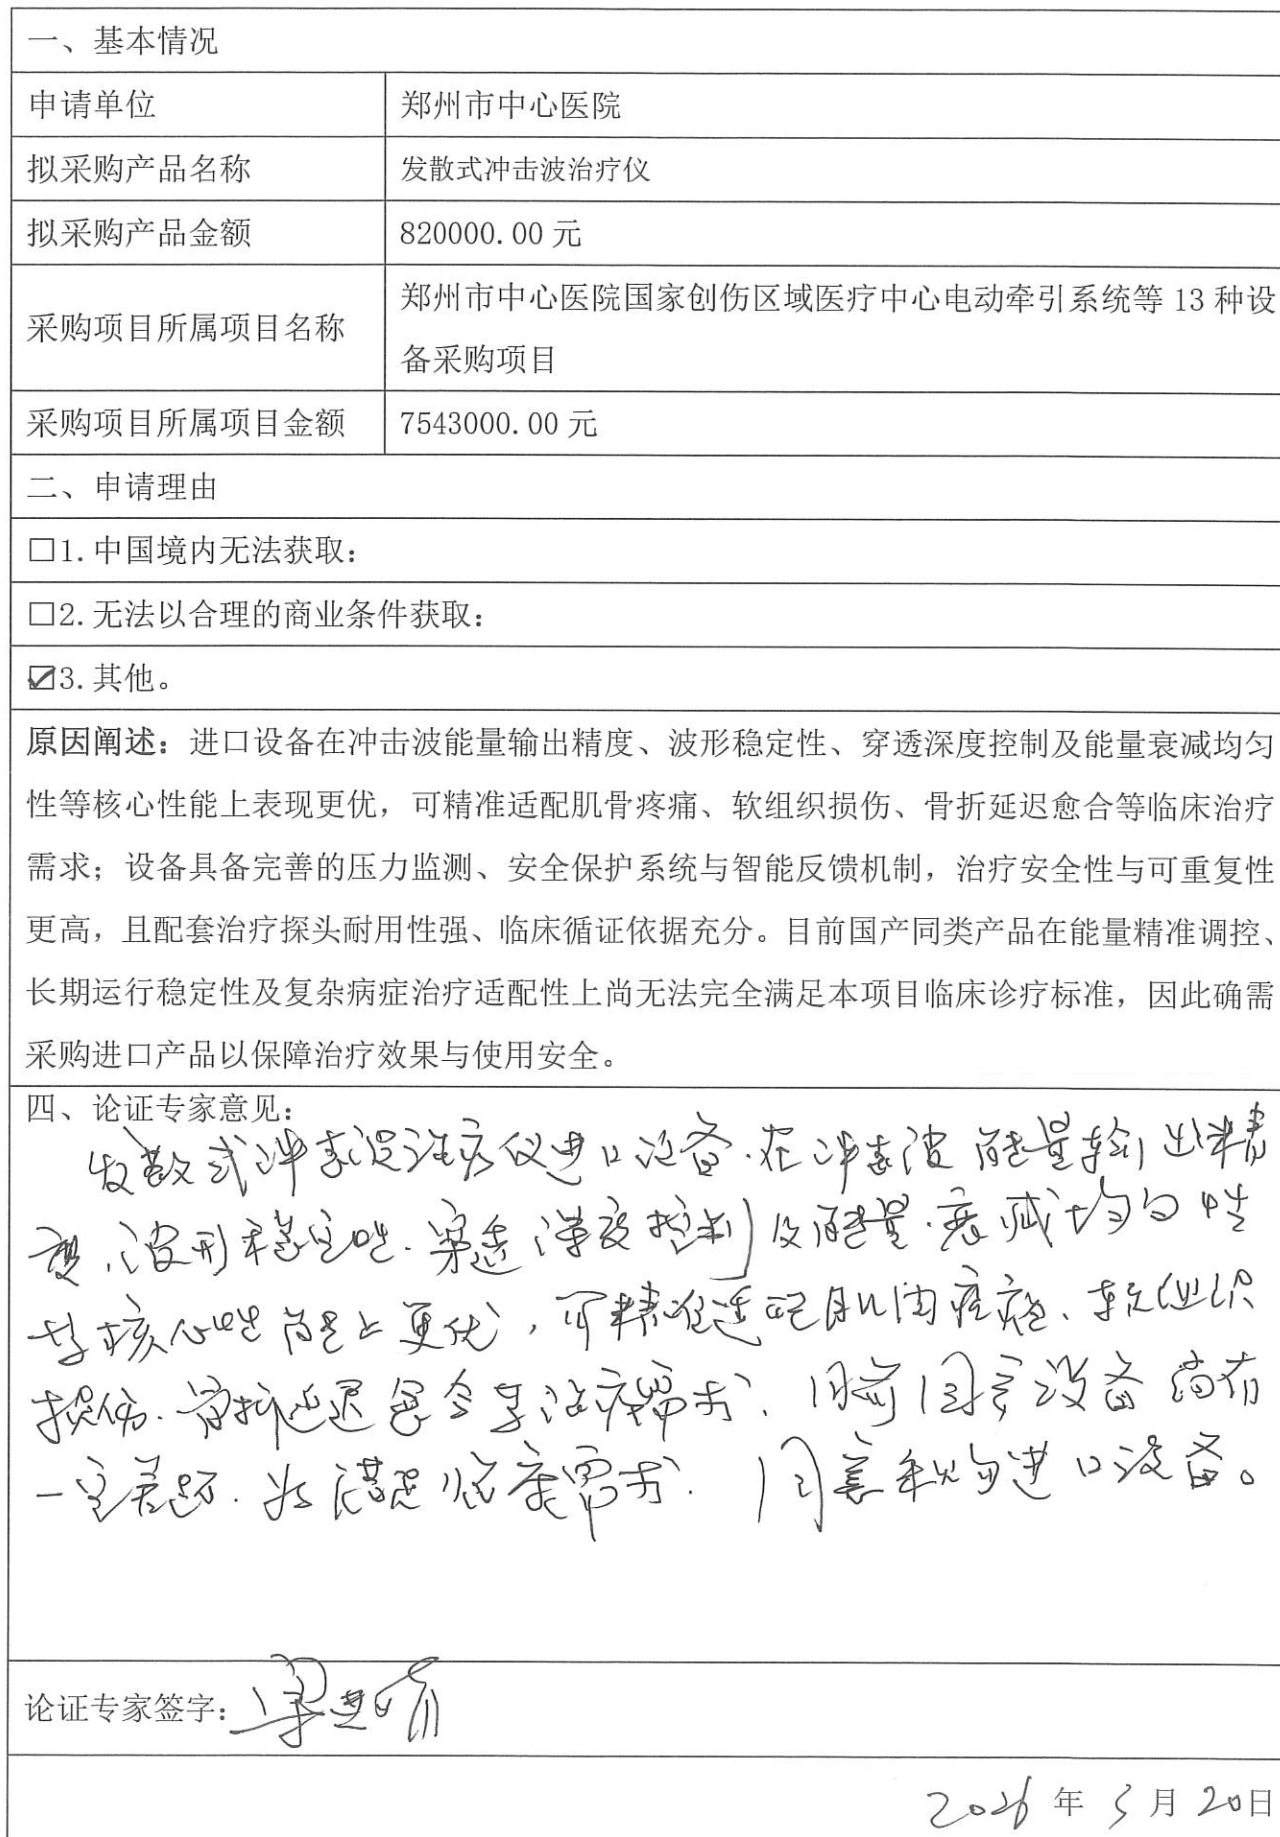 一、基本情况
申请单位 郑州市中心医院
拟采购产品名称 发散式冲击波治疗仪
拟采购产品金额 820000.00 元
采购项目所属项目名称 郑州市中心医院国家创伤区域医疗中心电动牵引系统等 13 种设
备采购项目
采购项目所属项目金额 7543000.00 元
二、申请理由
□1.中国境内无法获取：
□2.无法以合理的商业条件获取：
☑3.其他。
原因阐述：进口设备在冲击波能量输出精度、波形稳定性、穿透深度控制及能量衰减均匀
性等核心性能上表现更优，可精准适配肌骨疼痛、软组织损伤、骨折延迟愈合等临床治疗
需求；设备具备完善的压力监测、安全保护系统与智能反馈机制，治疗安全性与可重复性
更高，且配套治疗探头耐用性强、临床循证依据充分。目前国产同类产品在能量精准调控、
长期运行稳定性及复杂病症治疗适配性上尚无法完全满足本项目临床诊疗标准，因此确需
采购进口产品以保障治疗效果与使用安全。
四、论证专家意见：
发散式冲击波治疗仪进口设备.在冲击波能量输出精
度、波形稳定性.穿透深度控制及能量.衰减均匀性
等核心性能上更优，可精准适配肌肉疼痛、软组织
损伤.骨折延迟愈合等治疗需求.目前国产设备尚有
一定差距.为满足临床需求.同意采购进口设备。
论证专家签字：
2026年3月20日